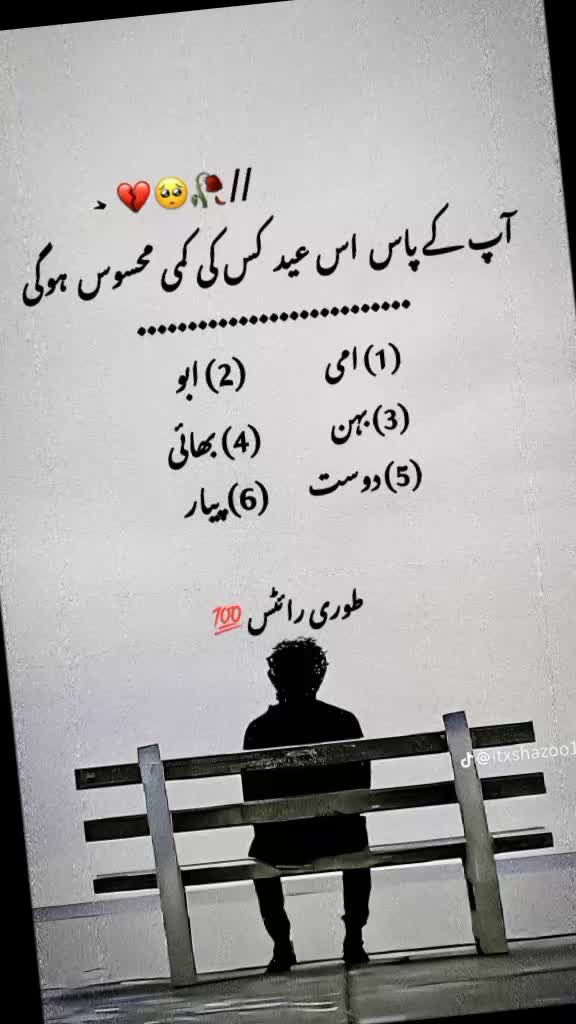 //🥀🥺💔
آپ کے پاس اس عید کس کی کمی محسوس ہوگی
(1) امی (2) ابو
(3) بہن (4) بھائی
(5) دوست (6) پیار
طوری رائٹس 💯
@itxshazoo1